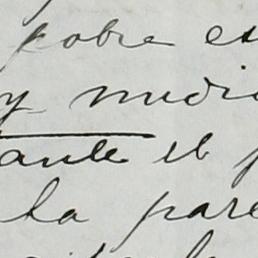 pobre es
y medi
ante el p
la pare